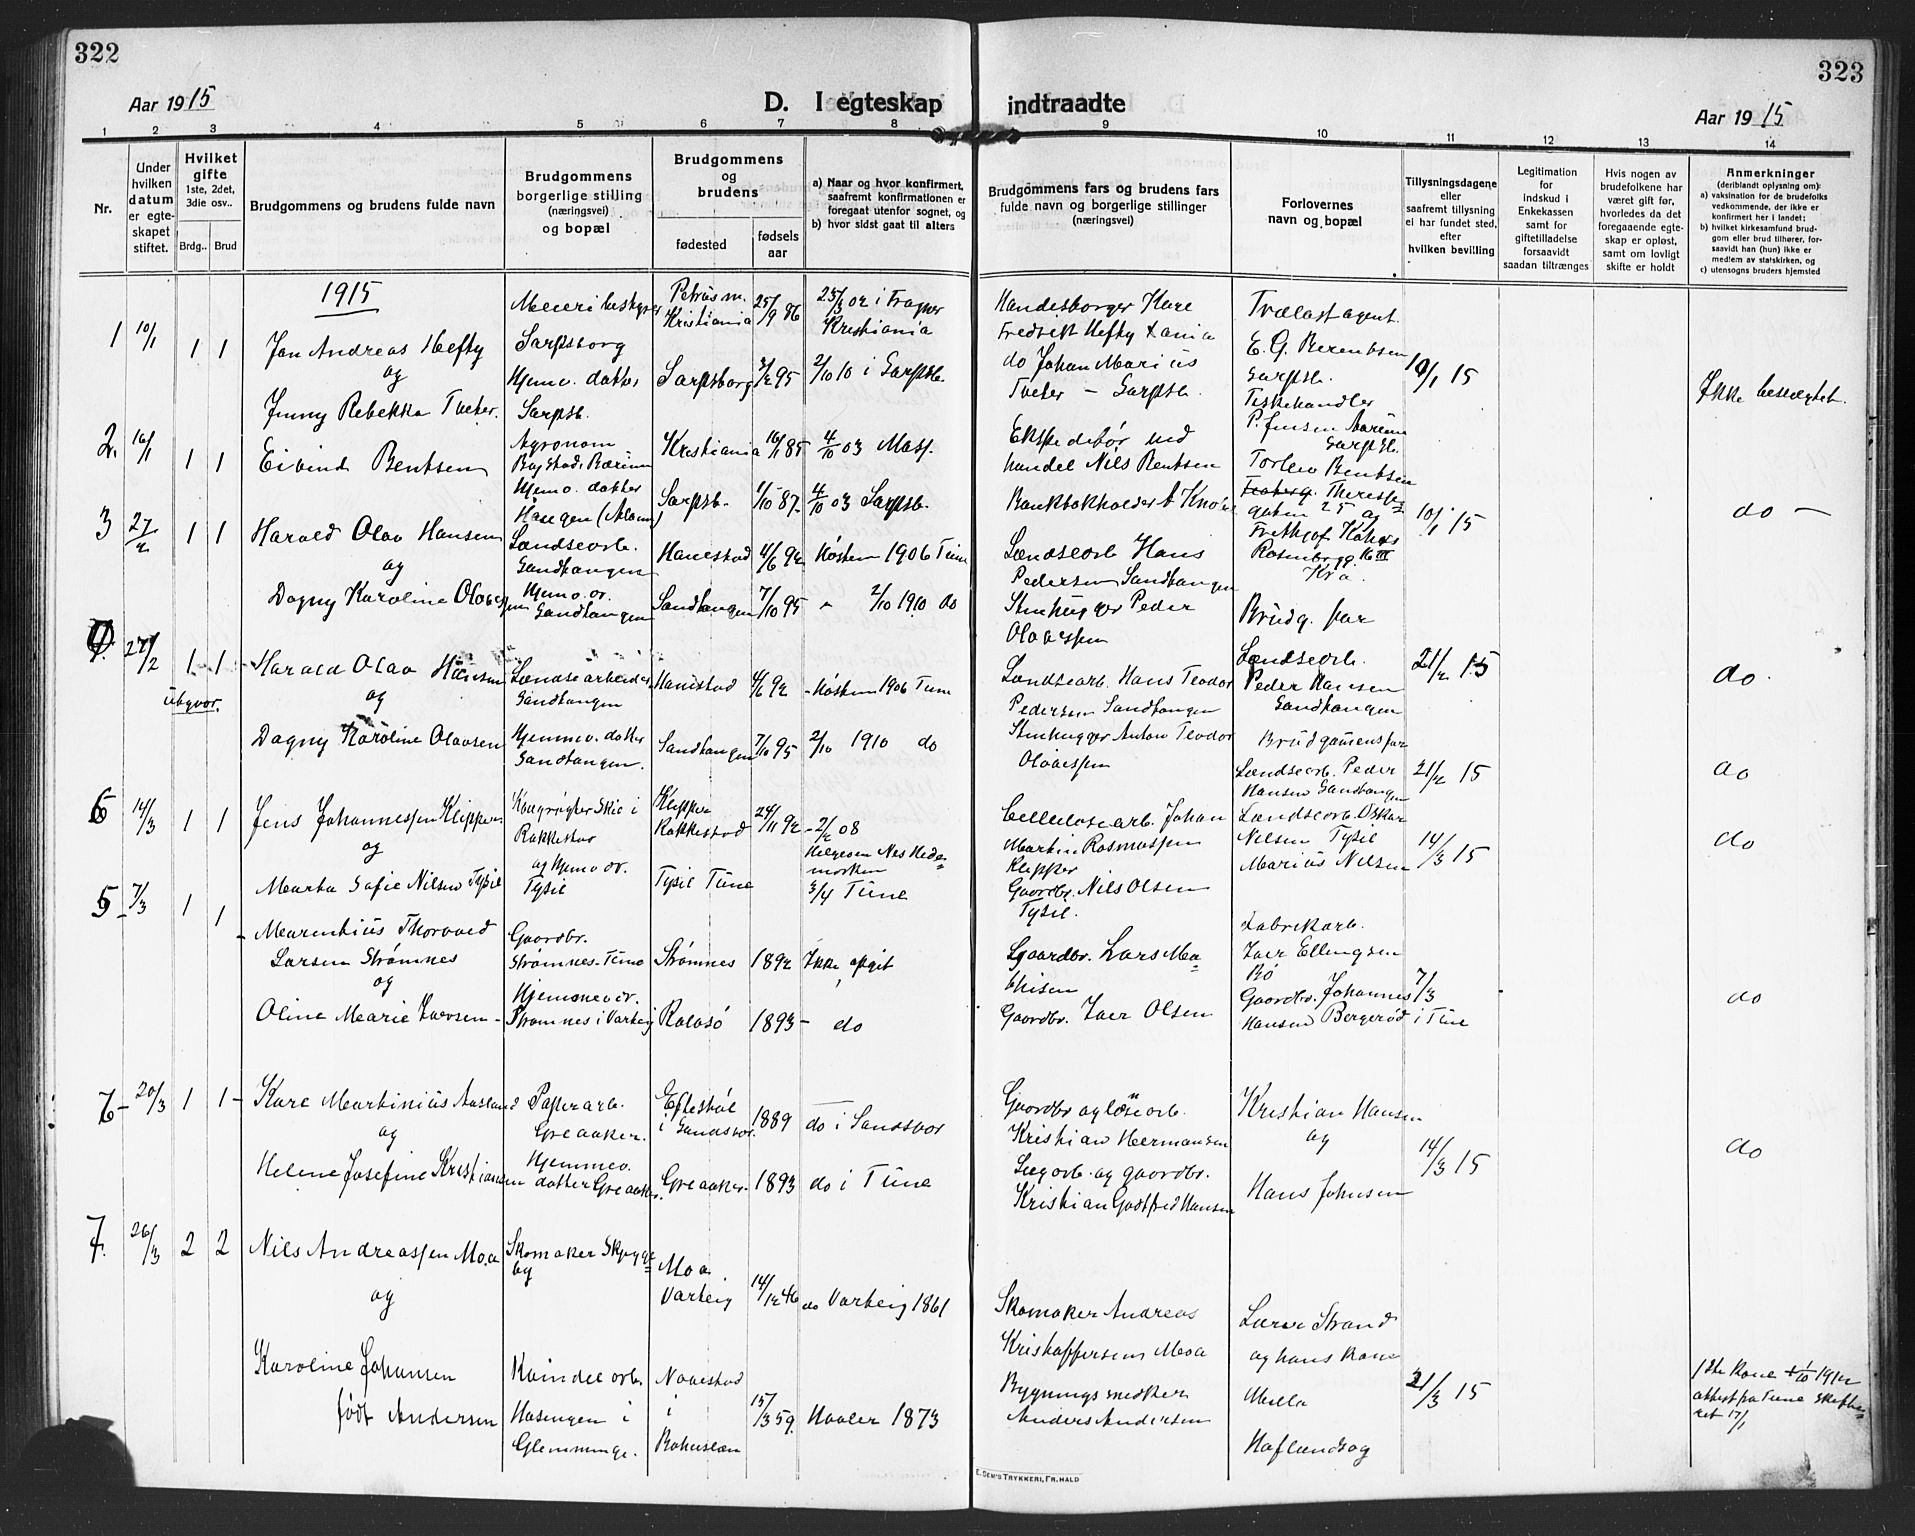 322
Aar 1915
D. I egteskap
1 2 3 4 5 6 7 8
Nr.
Under hvilken datum er egte-skapet stiftet.
Hvilket gifte
1ste, 2det, 3die osv..
Brdg.. Brud
Brudgommens og brudens fulde navn
Brudgommens borgerlige stilling (næringsvei) og bopæl
Brudgommens og brudens
fødested
fødsels aar
a) Naar og hvor konfirmert, saafremt konfirmationen er foregaat utenfor sognet, og
b) hvor sidst gaat til alters
1915
1 10/1 1 1
Jan Andreas Hefty
og
Jenny Rebekka Tveter.
Meieribestyrer
Sarpsborg
Hjemv. datter
Sarpsb.
Petrus m.
Kristiania 25/9 86
Sarpsborg 3/2 95
25/3 02 i Frogner
Kristiania
2/10 10 i Sarpsb.
2. 16/1 1 1
Eivind Bentsen
Agronom
Hjemv. datter
Kristiania 16/1 85
Sarpsb. 1/10 87
4/10 03 Moss.
4/10 03 Sarpsb.
3 27/2 1 1
Harald Olav Hansen
og
Dagny Karoline Olavesen
Lændsearb.
Sandtangen
Hjemv. dr.
Sandtangen
Hanestad 4/6 92
Sandtangen 7/10 95
Høsten 1906 Tune
„ 2/10 1910 do
4. 27/2 1 1
ubgvor.
Harald Olav Hansen
og
Dagny Karoline Olavsen
Lændsearbeider
Sandtangen
Hjemmev. datter
Sandtangen.
Hanestad 4/6 92
Sandtangen 7/10 95
Høsten 1906 Tune
2/10 1910 do
6 14/3 1 1
Jens Johannessen Klipper
og
Marta Sofie Nilsen Tysil
Rakkestad
og Hjemv. dr.
Tysil
Klipper
Rakkestad 24/11 92
Tysil Tune
2/2 08
Helgesen Nes Hedemarken
Tune
5 7/3 1 1
Marentius Thorvald
Larsen Strømnes
og
Oline Marie Iversen
Gaardbr.
Strømnes. Tune
Hjemmev. dr.
Strømnes i Varteig
Strømnes 1892
Rolvsø 1893
Ikke opgit
do
7 20/3 1 1
Kare Martinius Aasland
og
Helene Josefine Kristiansen
Papirarb.
Greaaker.
Hjemmev.
datter Greaaker
Eftestøl
i Sandsvær. 1889
Greaaker. 1893
do i Sandsvær
do i Tune
7. 26/3 2 2
Nils Andreassen Moa
og
Karoline Johansen
født Andersen
Skomaker Skjygge=
by
Kvindel. arb.
Hasengen i
Glemminge.
Moa
Varteig 14/12 46
Navestad
i
Bohuslæn 15/3 59.
do Varteig 1861
Haaler 1873
323
indtraadte
Aar 1915
9 10 11 12 13 14
Brudgommens fars og brudens fars fulde navn og borgerlige stillinger (næringsvei)
Forlovernes navn og bopæl
Tillysningsdagene eller saafremt tillysning ei har fundet sted, efter hvilken bevilling
Legitimation for indskud i Enkekassen samt for giftetilladelse forsaavidt saadan tiltrænges
Hvis nogen av brudefolkene har været gift før, hvorledes da det foregaaende egte-skap er opløst, samt om lovligt skifte er holdt
Anmerkninger
(deriblandt oplysning om):
a) vaksination for de brudefolks vedkommende, der ikke er konfirmert her i landet;
b) hvilket kirkesamfund brud-gom eller brud tilhører, for-saavidt han (hun) ikke er medlem av statskirken, og
c) utensogns bruders hjemsted
Handelsborger Kare
Fredrik Hefty
do Johan Marius
Tveter – Sarpsb.
Trælastagent
E. G. Berentsen
Sarpsb.
Fiskehandler
P. Jensen
Sarpsb.
10/1 15
Ikke beslegtet.
Ekspeditør ved
handel Nils Bentsen
Bankbokholder
Torlev Bentsen
Theresesgaten 25 og
Frithjof
Rosenborgg. 16 III
Kra.
10/1 15
do –
Lændsearb Hans
Pedersen Sandtangen
Stenhugger Peder
Olavessen
Brudg. far
Lændsearb.
Peder Hansen
Sandtangen
21/2 15
do.
Lændsearb. Hans Teodor
Pedersen Sandtangen
Stenhugger Anton Teodor
Olavessen
Brudgomens far
Lændsearb. Peder
Hansen Sandtangen
21/2 15
do
Cellulosearb. Johan
Martin Rasmussen
Klipper
Gaardbr. Nils Olsen
Tysil.
Lændsearb. Oskar
Nilsen Tysil
Marius Nilsen
14/3 15
do
Gaardbr. Lars Ma=
thisen
Gaardbr. Iver Olsen
Fabrikarb.
Iver Ellingsen
Bø
Gaardbr. Johannes
Hansen Bergerød i Tune
7/3
do
Gaardbr og løsarb.
Kristian Hermansen
Sagarb. og gaardbr.
Kristian Godtfred Hansen
Kristian Hansen
og
Hans Johnsen
14/3 15
do
Skomaker Andreas
Kristoffersen Moa
Bygningssnedker
Anders Andersen
Lærer Strand
og hans kone
Mella
Haflandsog
21/3 15
1ste kone + 1/10 1912
attest fra Tune skifte=
ret 17/1
E. Sem's Trykkeri, Fr.hald